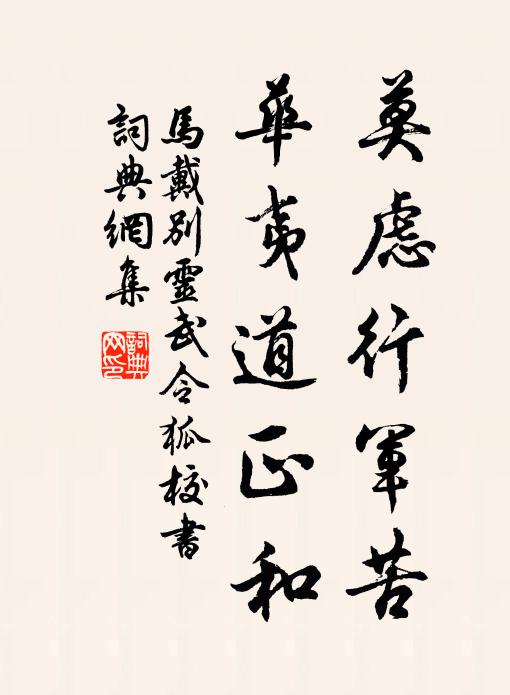 莫慮行軍苦
華夷道正和
馬戴別靈武令狐校書
詞典網集
詞典網印